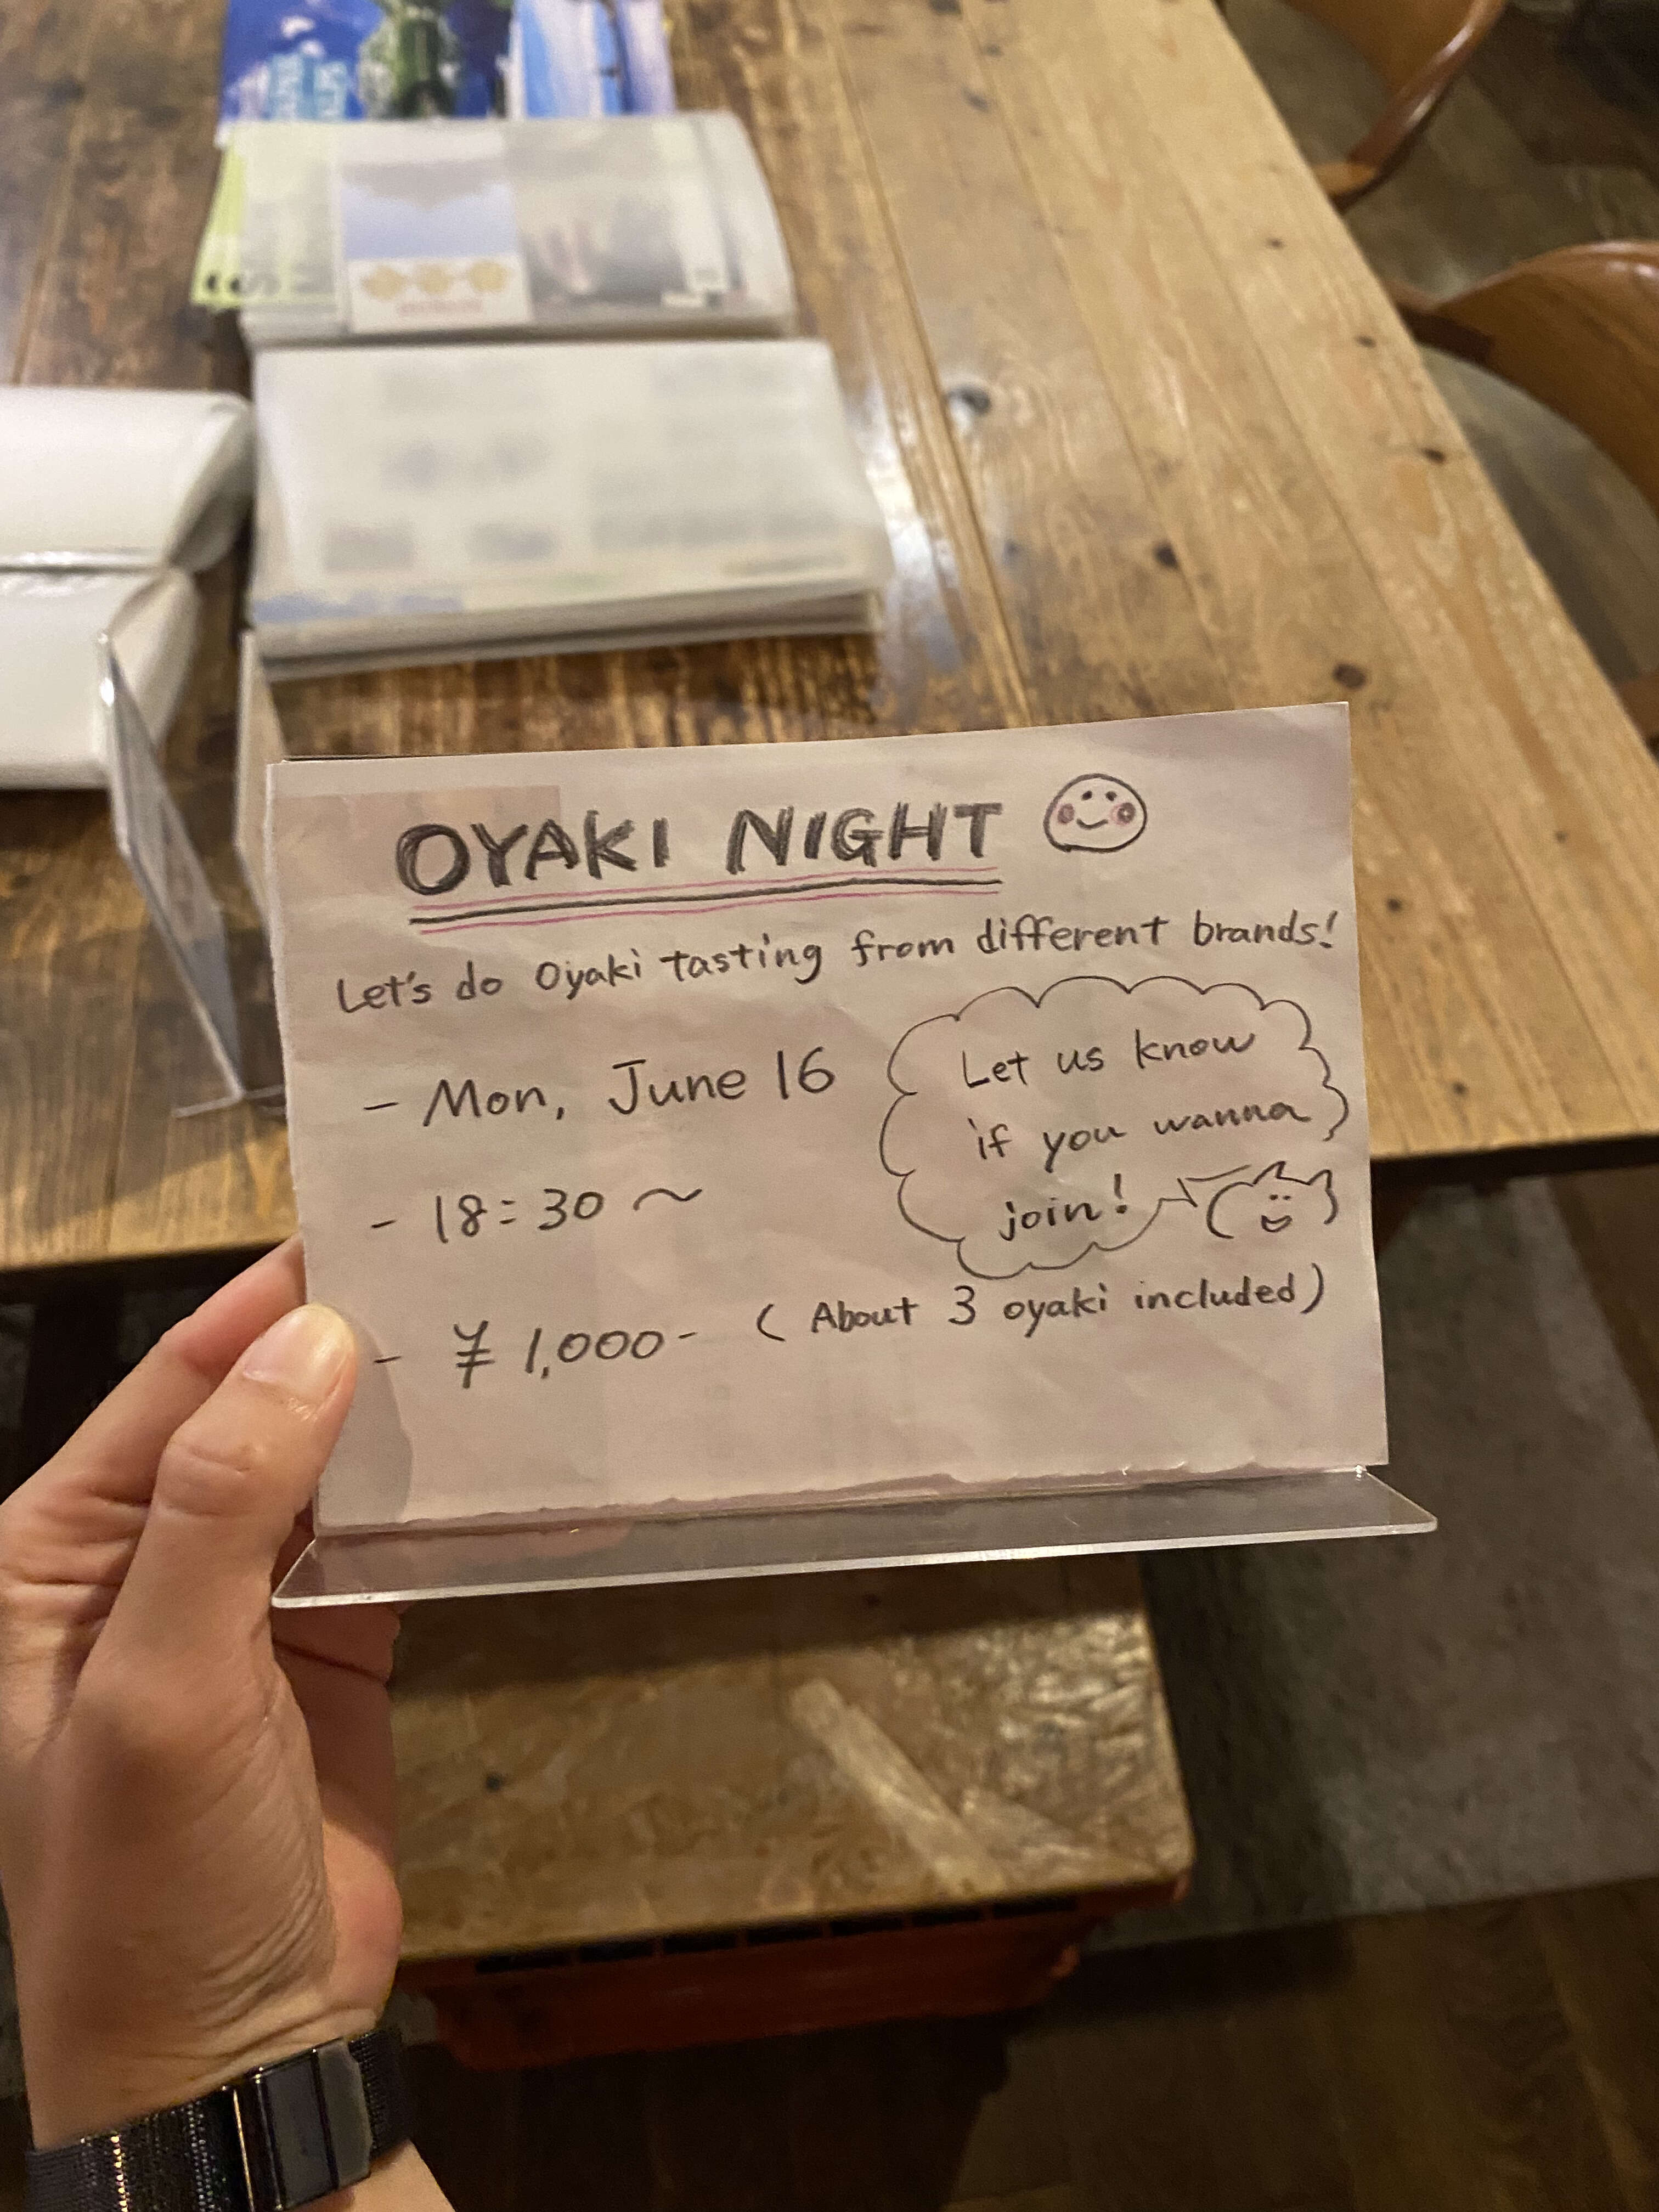 OYAKI NIGHT
Let's do Oyaki tasting from different brands!
- Mon, June 16
- 18:30 〜
- ¥ 1,000- ( About 3 oyaki included)
Let us know
if you wanna
join!